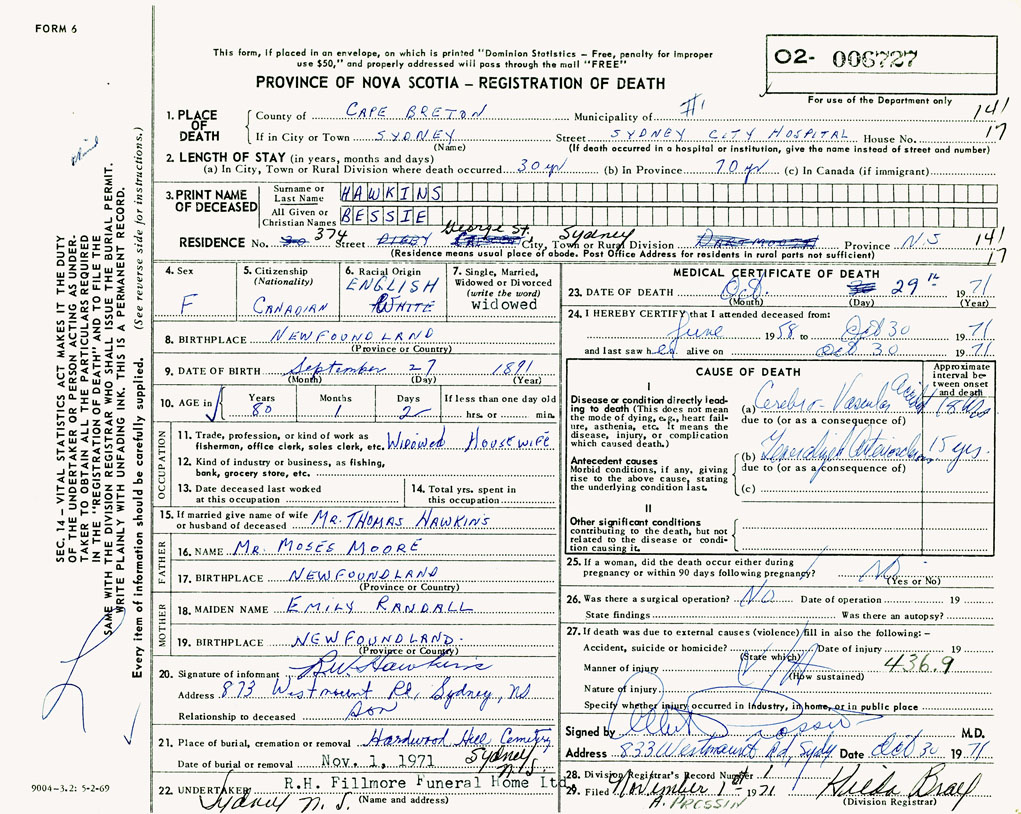 FORM 6
This form, if placed in an envelope, on which is printed "Dominion Statistics – Free, penalty for improper
use $50," and properly addressed will pass through the mail "FREE"
PROVINCE OF NOVA SCOTIA – REGISTRATION OF DEATH
02- 006727
For use of the Department only
1. PLACE OF DEATH
County of CAPE BRETON Municipality of #1 141
If in City or Town SYDNEY Street SYDNEY CITY HOSPITAL House No. 17
(Name) (If death occurred in a hospital or institution, give the name instead of street and number)
2. LENGTH OF STAY (in years, months and days)
(a) In City, Town or Rural Division where death occurred 30 yr (b) In Province 70 yr (c) In Canada (if immigrant)
3. PRINT NAME OF DECEASED
Surname or Last Name HAWKINS
All Given or Christian Names BESSIE
RESIDENCE No. 374 Street George St. City, Town or Rural Division Sydney Province N S 141
(Residence means usual place of abode. Post Office Address for residents in rural parts not sufficient) 17
4. Sex F
5. Citizenship (Nationality) CANADIAN
6. Racial Origin ENGLISH WHITE
7. Single, Married, Widowed or Divorced (write the word) widowed
8. BIRTHPLACE NEWFOUNDLAND
(Province or Country)
9. DATE OF BIRTH September 27 1891
(Month) (Day) (Year)
10. AGE in Years 80 Months 1 Days 2 If less than one day old hrs. or min.
OCCUPATION
11. Trade, profession, or kind of work as fisherman, office clerk, sales clerk, etc. WIDOWED HOUSEWIFE
12. Kind of industry or business, as fishing, bank, grocery store, etc.
13. Date deceased last worked at this occupation
14. Total yrs. spent in this occupation
15. If married give name of wife or husband of deceased MR. THOMAS HAWKINS
FATHER
16. NAME MR. MOSES MOORE
17. BIRTHPLACE NEWFOUNDLAND
(Province or Country)
MOTHER
18. MAIDEN NAME EMILY RANDALL
19. BIRTHPLACE NEWFOUNDLAND
(Province or Country)
20. Signature of informant R.W. Hawkins
Address 873 Westmount Rd, Sydney, NS
Relationship to deceased Son
21. Place of burial, cremation or removal Hardwood Hill Cemetery
Date of burial or removal Nov. 1, 1971 Sydney N.S.
R.H. Fillmore Funeral Home Ltd
22. UNDERTAKER Sydney N. S.
(Name and address)
MEDICAL CERTIFICATE OF DEATH
23. DATE OF DEATH Oct. 29th 1971
(Month) (Day) (Year)
24. I HEREBY CERTIFY that I attended deceased from:
June 1958 to Oct 30 1971
and last saw her alive on Oct 30 1971
CAUSE OF DEATH
Approximate interval between onset and death
I
Disease or condition directly leading to death (This does not mean the mode of dying, e.g., heart failure, asthenia, etc. It means the disease, injury, or complication which caused death.)
(a) Cerebro Vascular Accid
due to (or as a consequence of)
Antecedent causes
Morbid conditions, if any, giving rise to the above cause, stating the underlying condition last.
(b) 15 yrs.
due to (or as a consequence of)
(c)
II
Other significant conditions contributing to the death, but not related to the disease or condition causing it.
25. If a woman, did the death occur either during pregnancy or within 90 days following pregnancy? No
(Yes or No)
26. Was there a surgical operation? No Date of operation 19
State findings Was there an autopsy?
27. If death was due to external causes (violence) fill in also the following: –
Accident, suicide or homicide? Date of injury 19
(State which)
Manner of injury 436.9
(How sustained)
Nature of injury
Specify whether injury occurred in industry, in home, or in public place
Signed by M.D.
Address 833 Westmount Rd, Sydy Date Oct 30 1971
28. Division Registrar's Record Number 1
29. Filed November 1st 1971 Hilda
A. PRESSIN (Division Registrar)
SEC. 14 – VITAL STATISTICS ACT MAKES IT THE DUTY
OF THE UNDERTAKER OR PERSON ACTING AS UNDER-
TAKER TO OBTAIN ALL THE PARTICULARS REQUIRED
IN THE "REGISTRATION OF DEATH" AND TO FILE THE
SAME WITH THE DIVISION REGISTRAR WHO SHALL ISSUE THE BURIAL PERMIT.
WRITE PLAINLY WITH UNFADING INK. THIS IS A PERMANENT RECORD.
Every item of information should be carefully supplied. (See reverse side for instructions.)
9004-3.2: 5-2-69